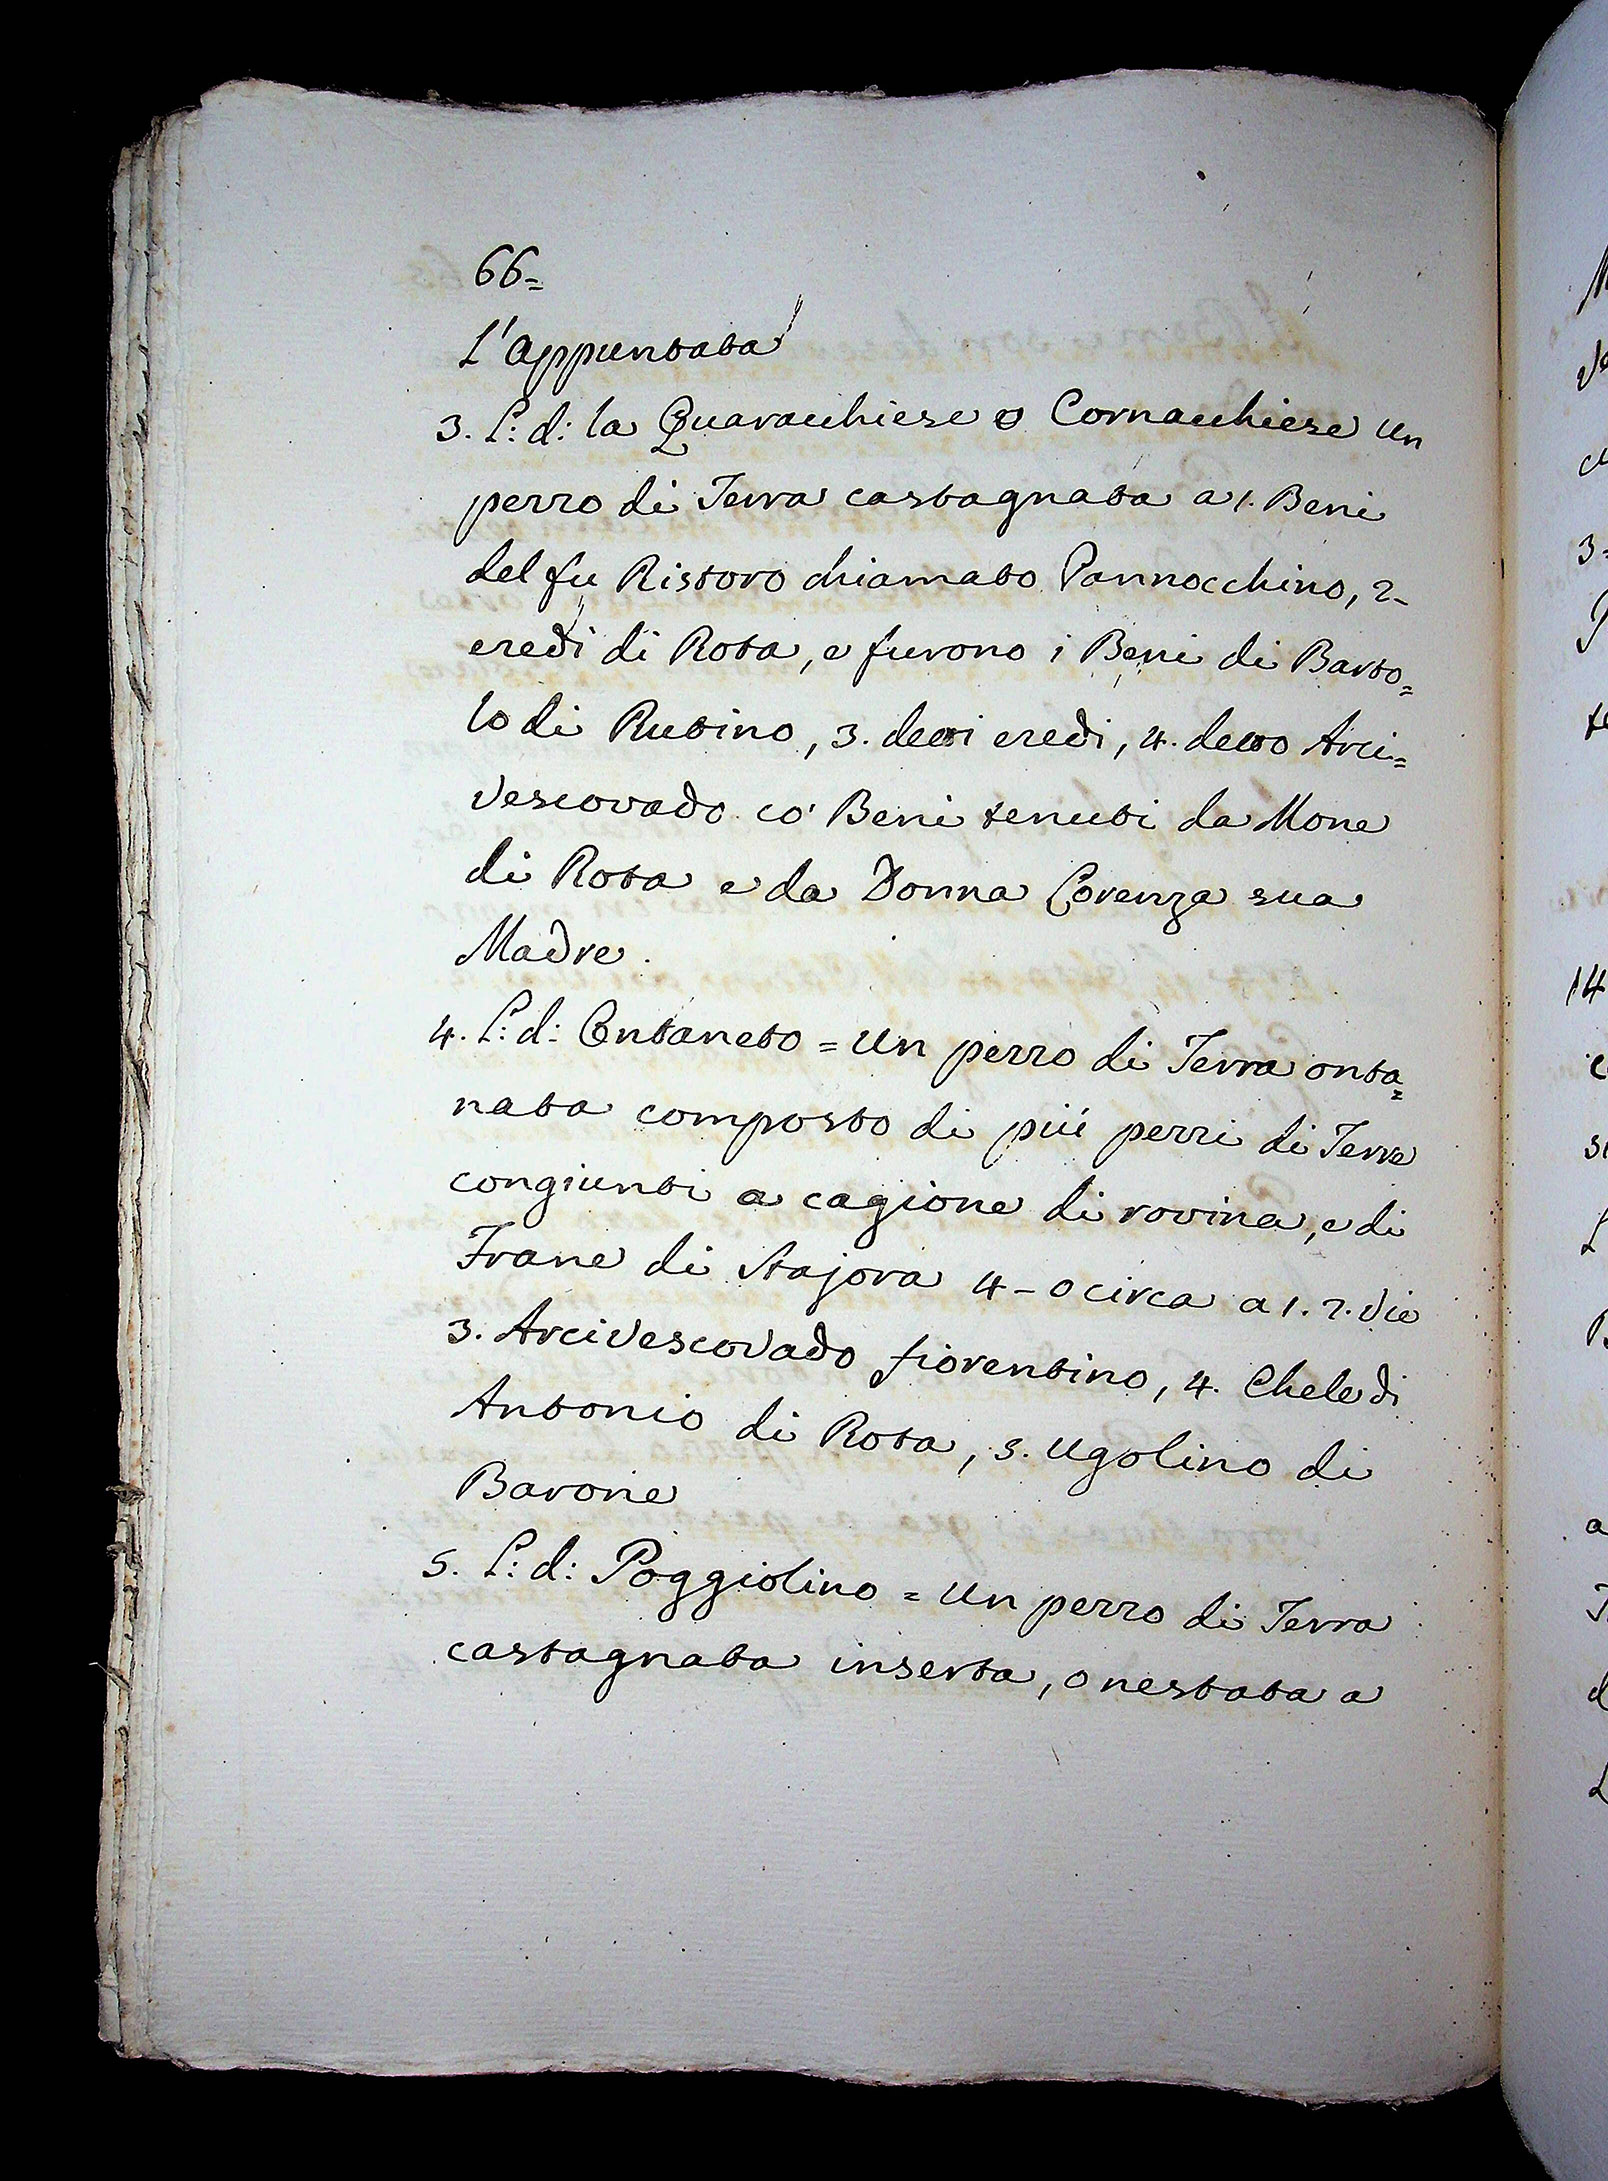 66=
L'Appuntata
3. L: d: la Quaracchiese o Cornacchiese un
pezzo di Terra castagnata a 1. Beni
del fu Ristoro chiamato Pannocchino, 2-
eredi di Rota, e furono i Beni di Barto=
lo di Rutino, 3. detti eredi, 4. detto Arci=
vescovado co' Beni tenuti da Mone
di Rota e da Donna Lorenza sua
Madre.
4. L: d: Ontaneto = Un pezzo di Terra onta=
nata composto di più pezzi di Terre
congiunti a cagione di rovina, e di
Frane di Stajora 4-0 circa a 1. 2. Vie
3. Arcivescovado fiorentino, 4. Chele di
Antonio di Rota, 5. Ugolino di
Barone
5. L: d: Poggiolino = Un pezzo di Terra
castagnata inserta, o nestata a